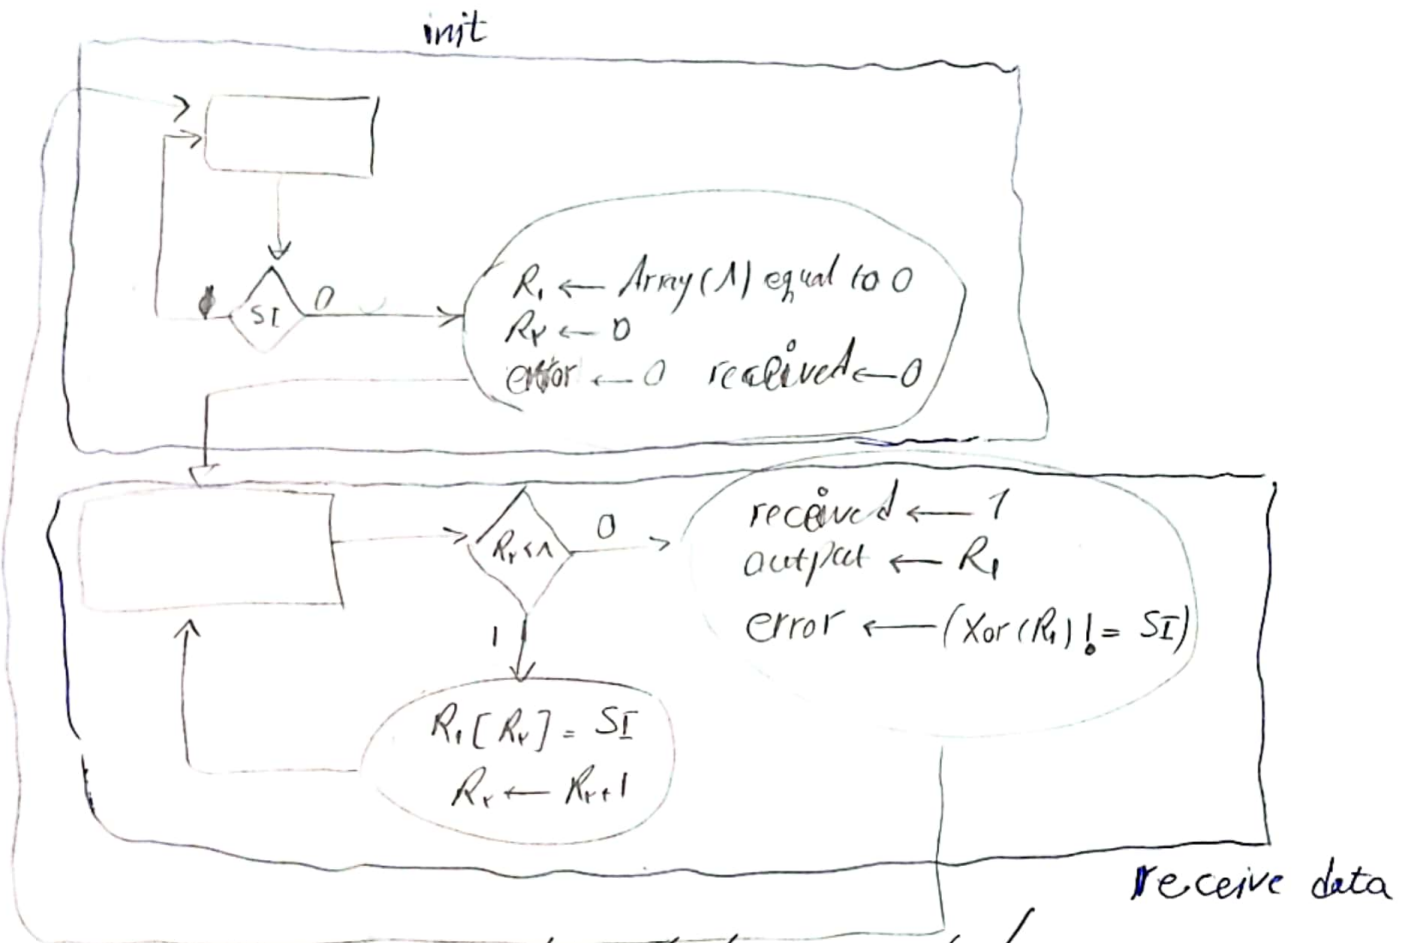 init
SI
0
R۱ ← Array(۸) equal to 0
R۲ ← 0
error ← 0 received ← 0
R۲<۸
0
1
received ← 1
output ← R۱
error ← (Xor(R۱) != SI)
R۱[R۲] = SI
R۲ ← R۲+1
receive data